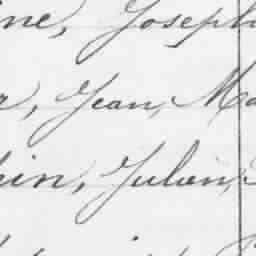 ne, Joseph
, Jean, Ma
in, Julien,